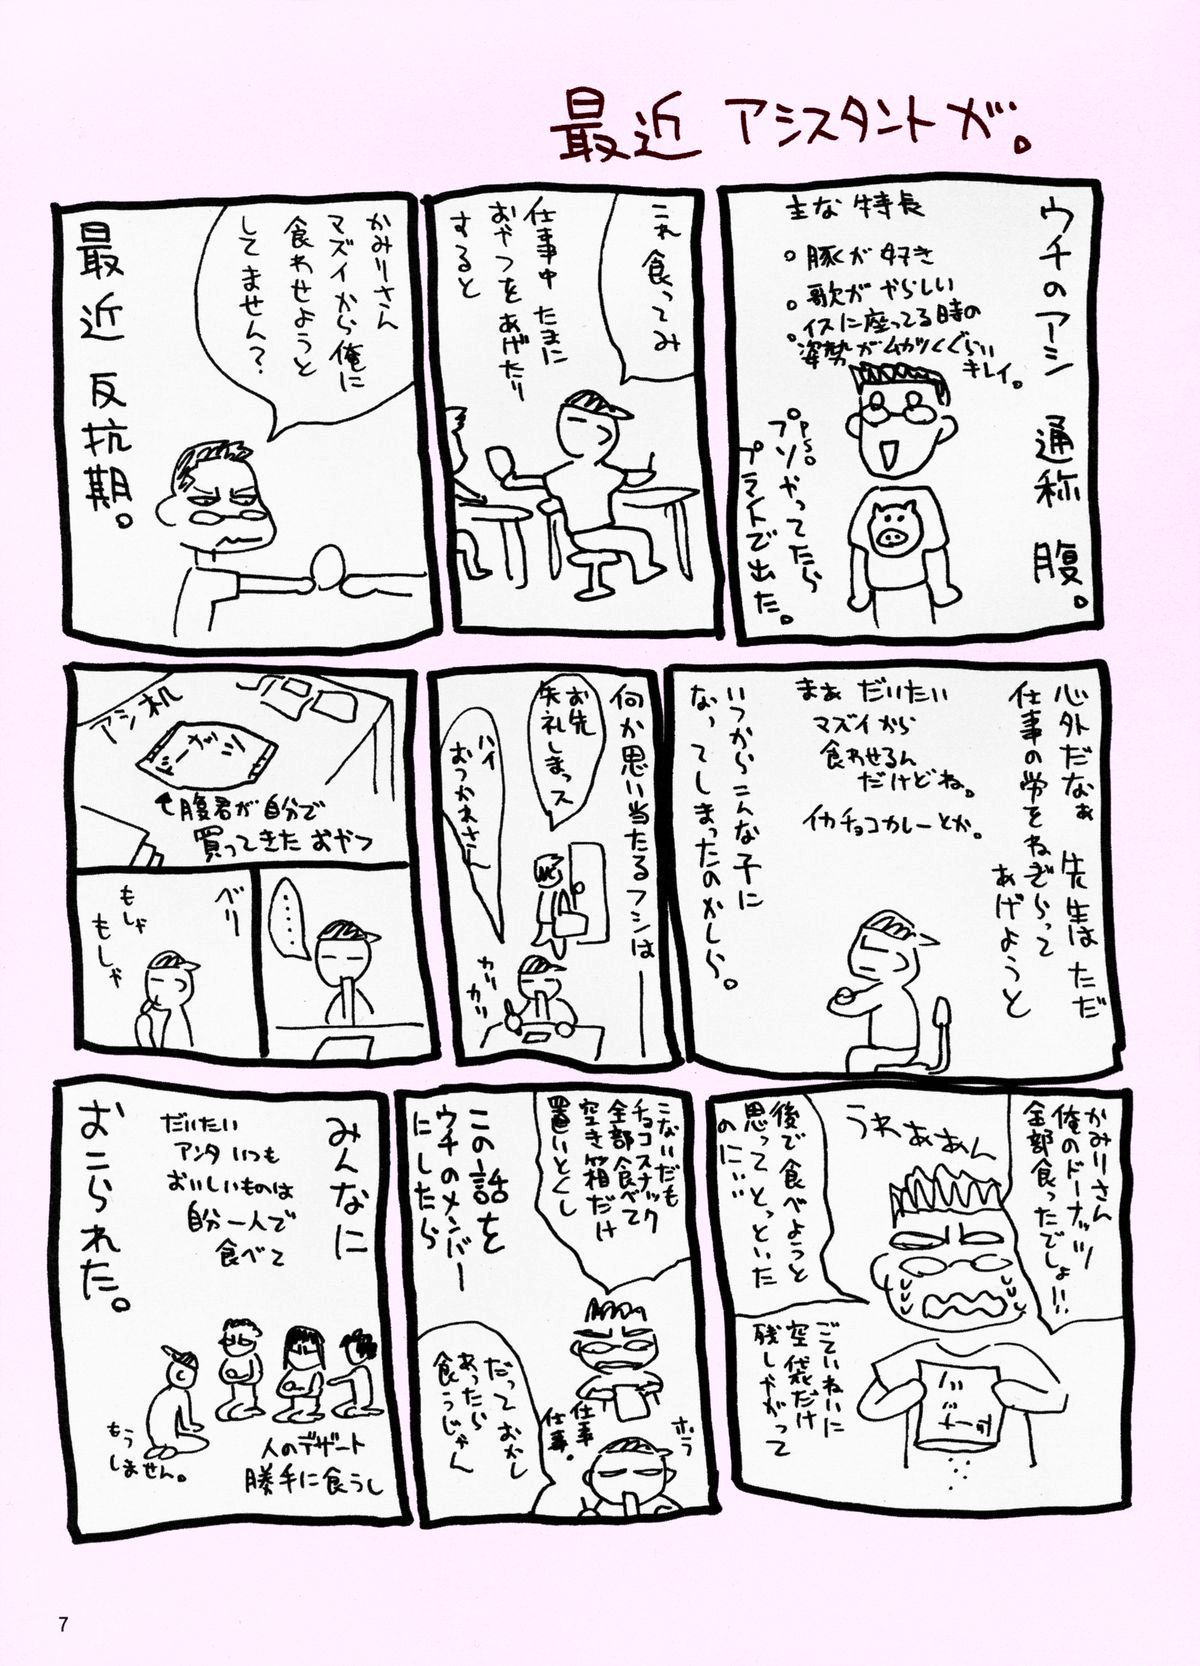 最近 アシスタントが。
ウチのアシ 通称 腹。
主な特長
豚が好き
歌がやらしい
イスに座ってる時の
姿勢がムカツくぐらい
キレイ。
P.S.
プソやってたら
プライドで出た。
これ食ってみ
仕事中たまに
おやつをあげたり
すると
かみりさん
マズイから俺に
食わせようと
してません?
最近 反抗期。
心外だなぁ 先生はただ
仕事の労をねぎらって
あげようと
まぁ だいたい
マズイから
食わせるん
だけどね。
イカチョコカレーとか。
いつからこんな子に
なってしまったのかしら。
何か思い当たるフシは
お先
失礼しまっス
ハイ
おつかれさん
カリ
カリ
アシ机
ガシ
↑腹君が自分で
買ってきたおやつ
・・・・
べリー
もしゃ
もしゃ
かみりさん
俺のドーナッツ
全部食ったでしょ!!
うわぁぁん
後で食べようと
思ってとっといた
のに…
ごていねいに
空袋だけ
残しやがって
こないだも
チョコスナック
全部食べて
空き箱だけ
置いとくし
この話を
ウチのメンバー
にしたら
だっておかし
あったら
食うじゃん
仕事
仕事。
ホラ
みんなに
おこられた。
だいたい
アンタいつも
おいしいものは
自分一人で
食べて
人のデザート
勝手に食うし
もう
しません。
7